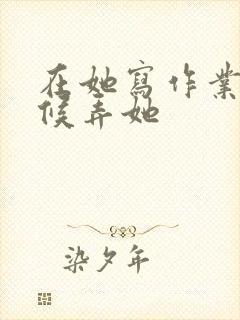 在她寫作業
候弄她
染夕年